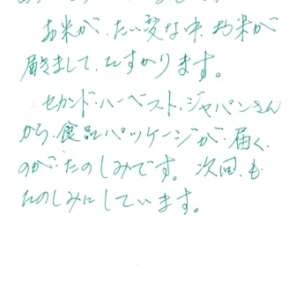 お米が、たい変な中、お米が
届きまして、たすかります。
セカンド・ハーベスト・ジャパンさん
から、食品パッケージが、届く、
のが、たのしみです。次回、も
たのしみにしています。